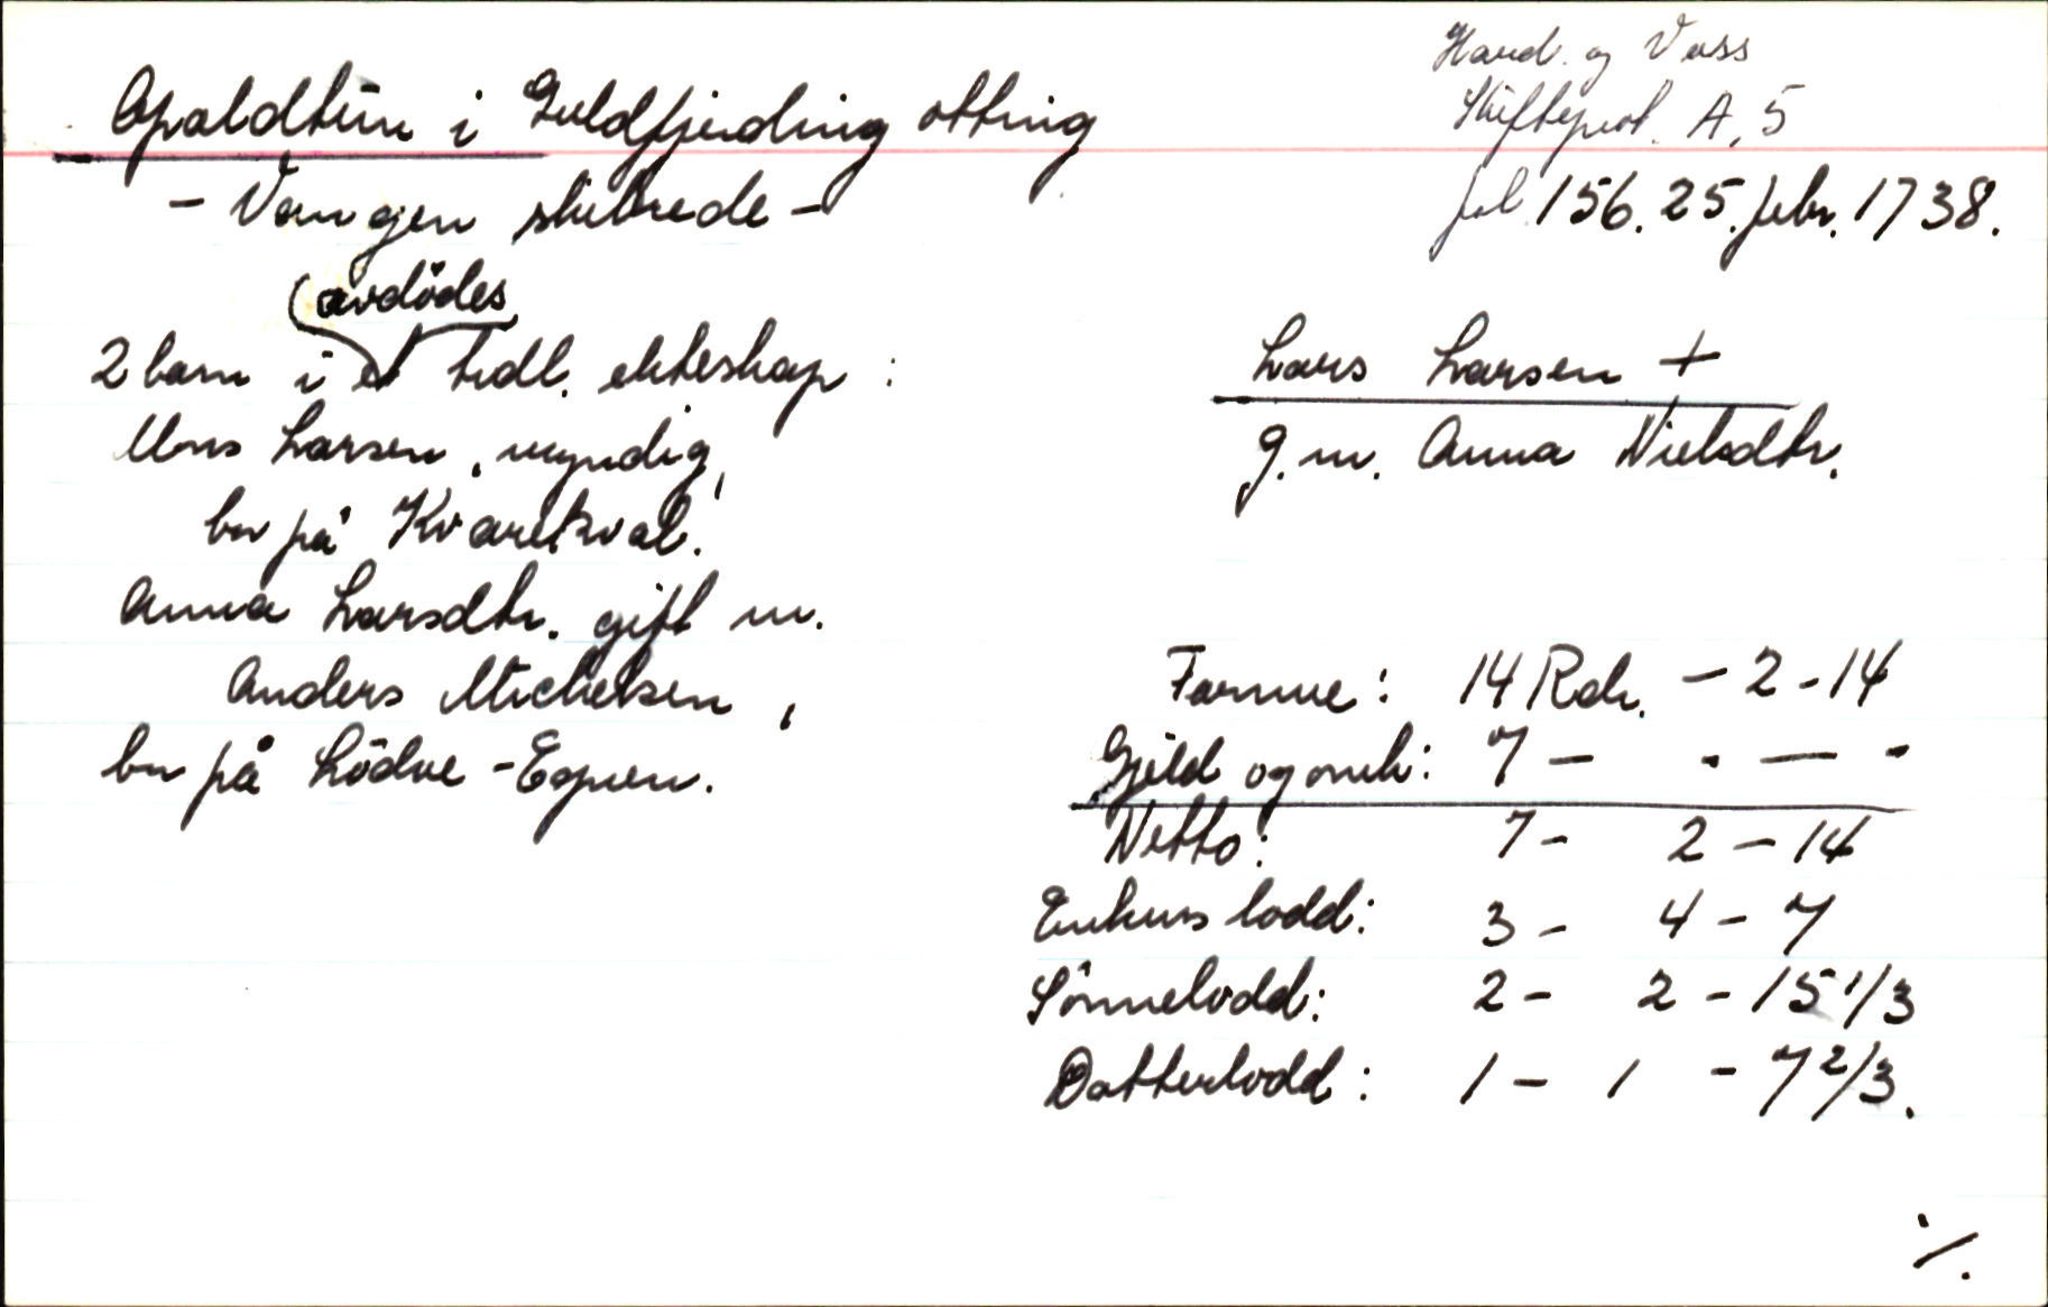 Apaldtün i Guldfjerding otting
- Vangen skibrede -
Hard. og Voss
Skifteprot. A, 5
fol 156. 25. febr. 1738.
(avdödes
2 barn i et tidl. ekteskap :
Mons Larsen, myndig,
bor på Kvarekval.
Anna Larsdtr. gift m.
Anders Michelsen,
bor på Lödve - Espen.
Lars Larsen +
g. m. Anna Nielsdtr.
Formue: 14 Rdr. - 2 - 14
Gjeld og omk: 7 - - — -
Netto: 7 - 2 - 14
Enkens lodd: 3 - 4 - 7
Sönnelodd: 2 - 2 - 15 1/3
Datterlodd: 1 - 1 - 7 2/3.
./.